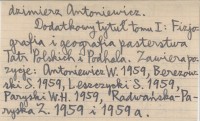 dzimierz Antoniewicz.
Dodatkowy tytuł tomu I: Fizjo-
grafia i geografia pasterstwa
Tatr Polskich i Podhala. Zawiera po-
zycje: Antoniewicz W. 1959, Berezow-
ski S. 1959, Leszczycki S. 1959,
Paryski W.H. 1959, Radwańska-Pa-
ryska Z. 1959 i 1959a.